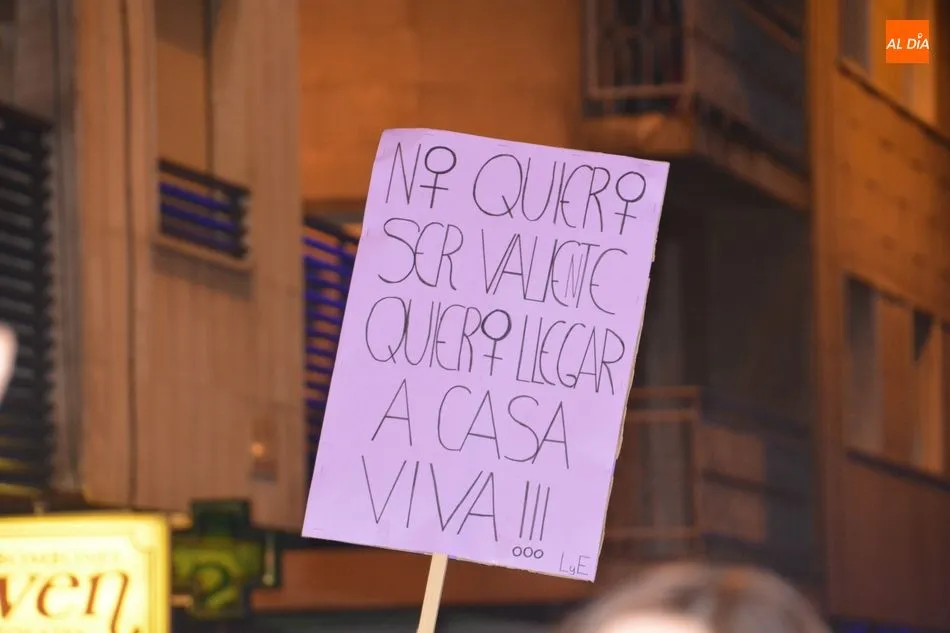 AL DÍA
NO QUIERO
SER VALIENTE
QUIERO LLEGAR
A CASA
VIVA !!!
LyE
ven